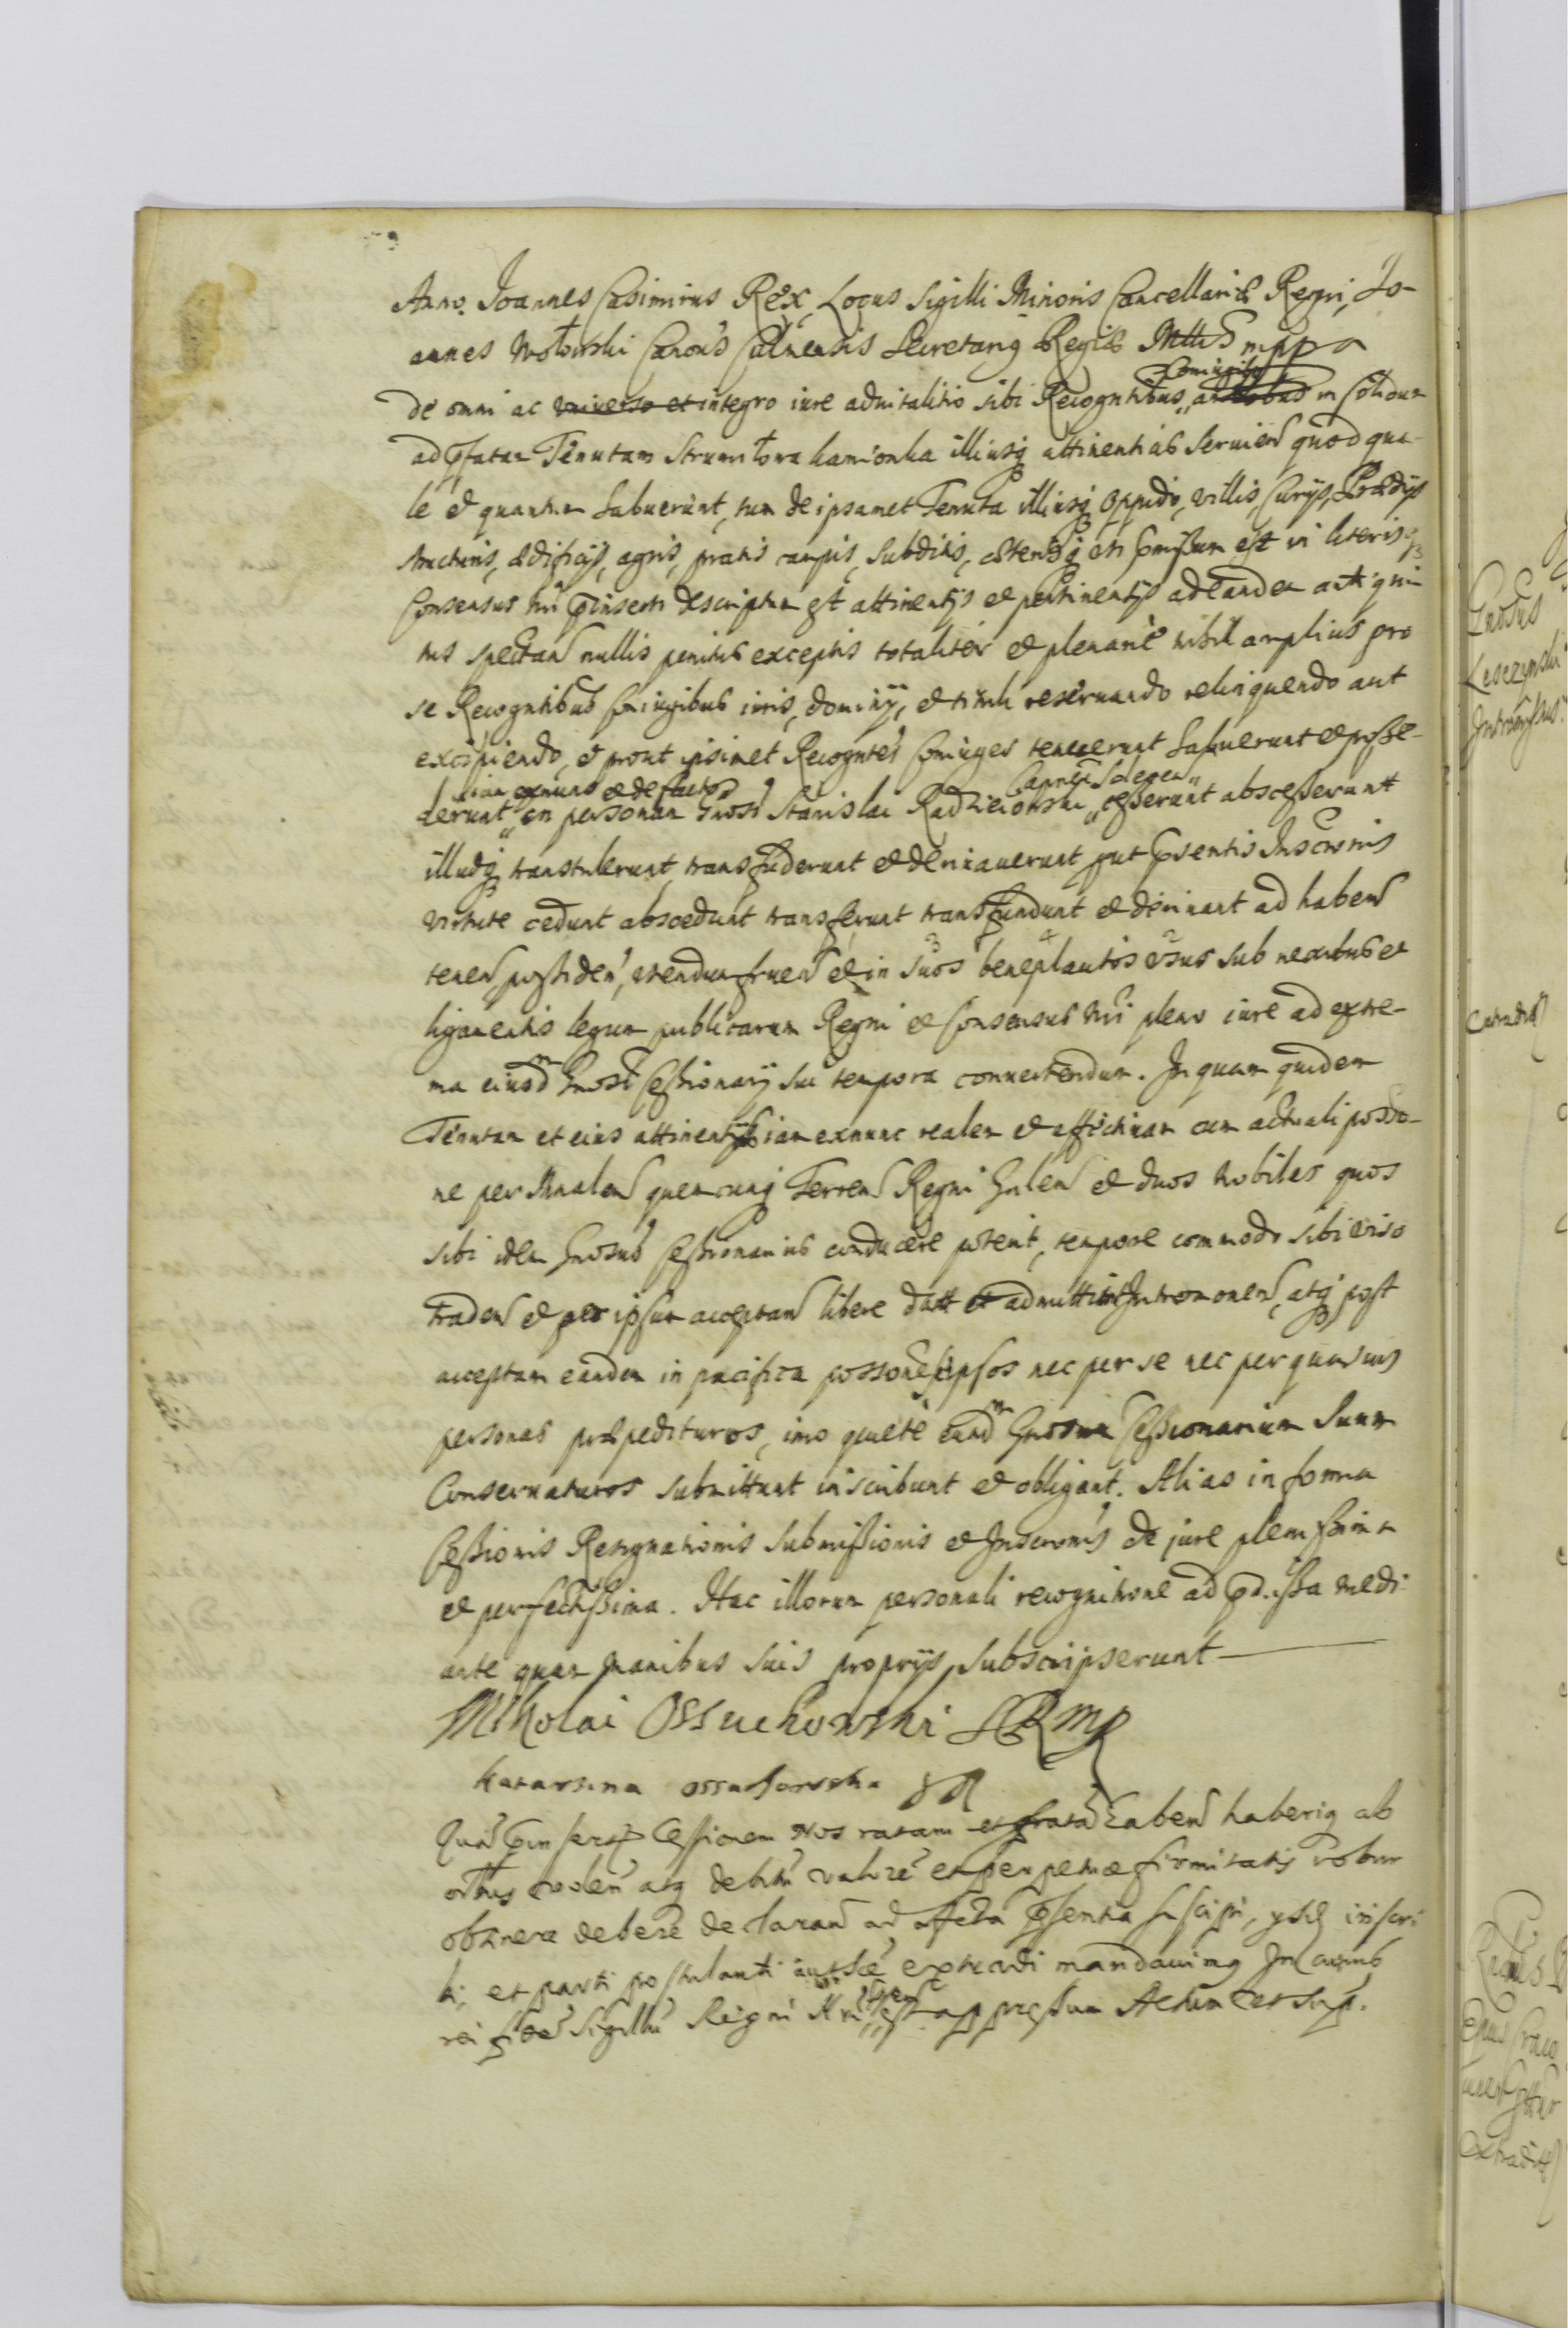 Anno. Joannes Casimirus Rex, Locus Sigilli Minoris Cancellariæ Regni, Jo-
annes Wołowski Canon9 Culmensis Secretarig Regiæ Mttis mpp
Coniugib9
de omni ac universo et integro iure advitalitio sibi Recogntibus, ambobus in solidum
ad pfatam Tenutam Strumiłowa kamionka illiusq attinentias serviend quod qua-
le et quantum habuerunt, tum de ipsamet Tenuta illiusq Oppido, villis, Curijs, Prædijs
structuris, ædificijs, agris, pratis campis, subditis, cæterisq uti Comissum est in literisq
Consensus nri pinserti descriptum est attinentijs et pertinentijs ad eandem antiqui-
tus spectan nullis penitus exceptis totaliter et plenariè nihil amplius pro
se Recogntibus Coniugibus iuris, dominij, et tituli reservando relinquendo aut
excipiendo, et prout ipsimet Recogntes Coniuges tenuerunt habuerunt et posse-
iam exnunc et de facto
derunt in personam Gnosi Stanislai Radzieiowski cesserunt abscesserunt
illudq transtulerunt transfuderunt et derivaverunt put psentis Inscronis
virtute cedunt abscedunt transferunt transfundunt et derivant ad habend
tenend, possidend, utendumfruend et in suos beneplacitos usus sub nexibus et
3 4 2
ligamentis legum publicarum Regni et Consensus Nri pleno iure ad extre-
ma eiusdm Gnosi Cessionarij sui tempora convertendum. In quam quidem
Tenutam et eius attinentijs iam exnunc realem et effectivam cum actuali possio-
ne per Mnalem quemcunq Terren Regni Gnlem et duos Nobiles quos
sibi idem Gnosus Cessionarius conducere poterit, tempore commodo sibi viso
traden et per ipsum acceptan libere datt et admittitt Intromonem, atq post
acceptam eandem in pacifica possone ipsos nec per se nec per quasuis
personas præpedituros, imo quietè eundm Gnosum Cessionarium suum
Conservaturos submittunt inscribunt et obligant. Alias in forma
Cessionis Resignationis submissionis et Inscronis de jure plenissima
et perfectissima. Hac illorum personali recognitione ad pdissa medi-
ante quam manibus suis proprijs subscripserunt
Mikolai Ossuchowski SKRmp
Katarzina ossuchowska
Quam pinsertam Cessionem Nos ratam et gratam haben haberiq ab
oibus volen atq debitum valorem et perpetuæ firmitatis robur
obtinere debere declaran ad affecta psentia suscipi, inscri
bi, et parti postulanti extradi mandavimg In cuiusb
rei fidem Sigillum Regni Nri est appressum Actum ut sup.
Gnosus
Lesczynski
Extradit